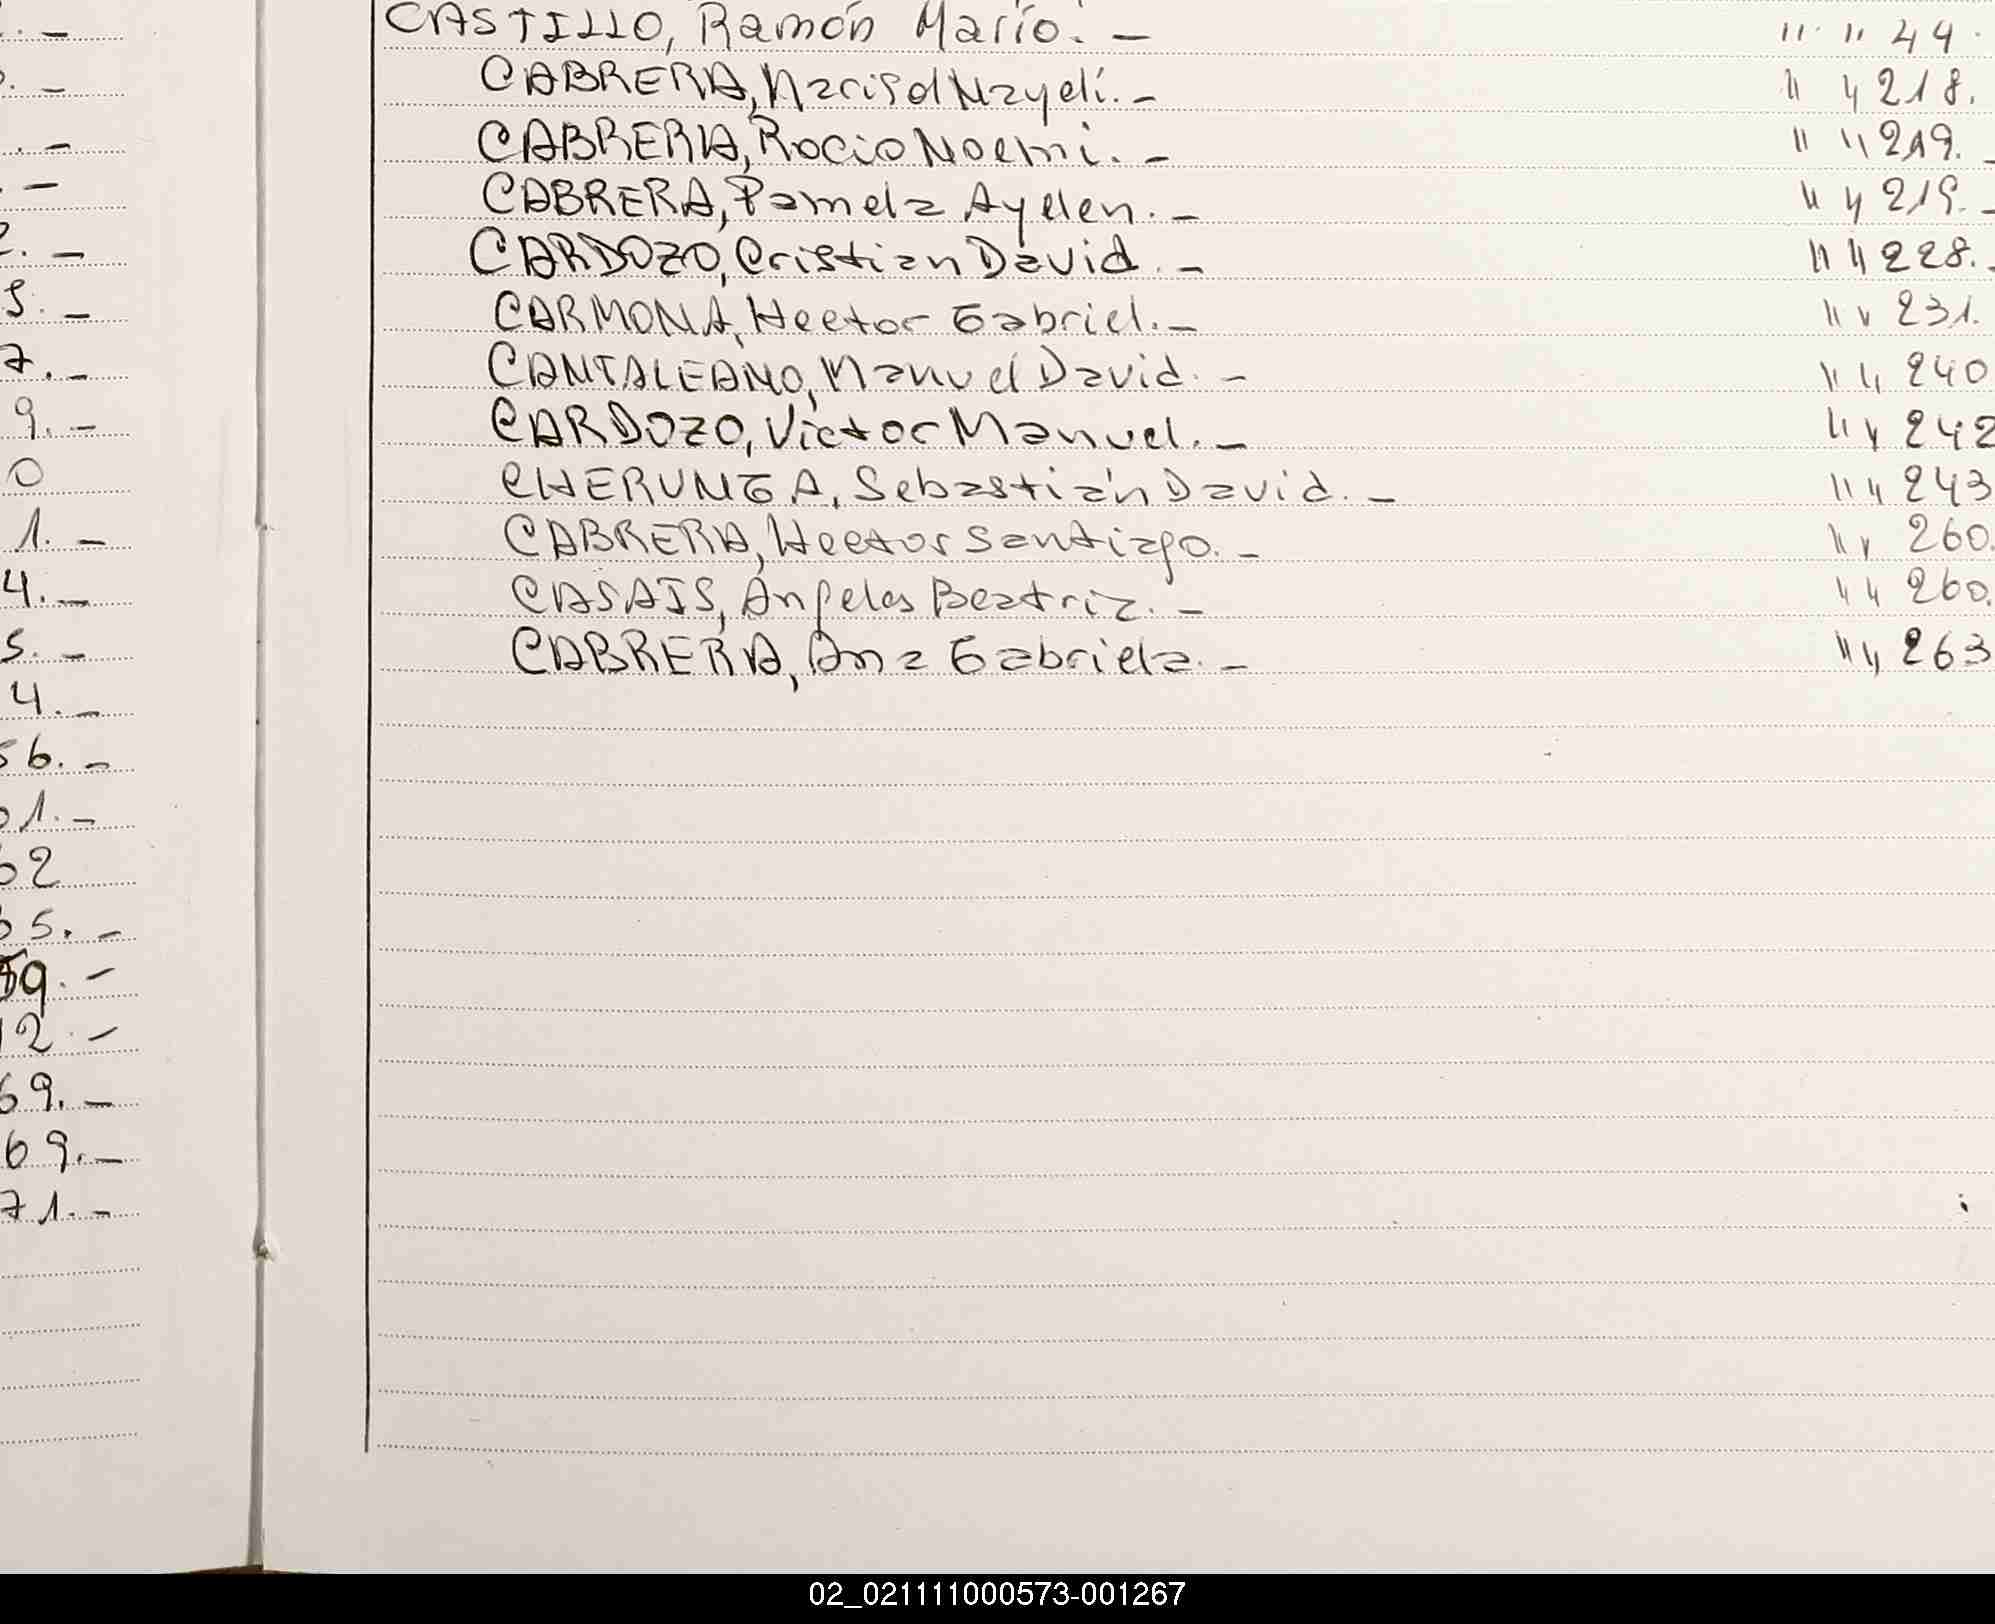 . -
. -
. -
. -
2. -
5. -
7. -
9. -
0
1. -
4. -
5. -
4. -
56. -
01. -
62
65. -
59. -
12. -
69. -
69. -
71. -
CASTILLO, Ramón Mario. - " " 44.
CABRERA, Marisol Naydi. - " " 218.
CABRERA, Rocio Noemi. - " " 219. -
CABRERA, Pamela Ayelen. - " " 219. -
CARDOZO, Cristian David. - " " 228. -
CARMONA, Hector Gabriel. - " " 231.
CANTALEANO, Manuel David. - " " 240
CARDOZO, Victor Manuel. - " " 242
CHERUNGA, Sebastián David. - " " 243
CABRERA, Hector Santiago. - " " 260.
CASAIS, Angeles Beatriz. - " " 260.
CABRERA, Ana Gabriela. - " " 263
02_021111000573-001267